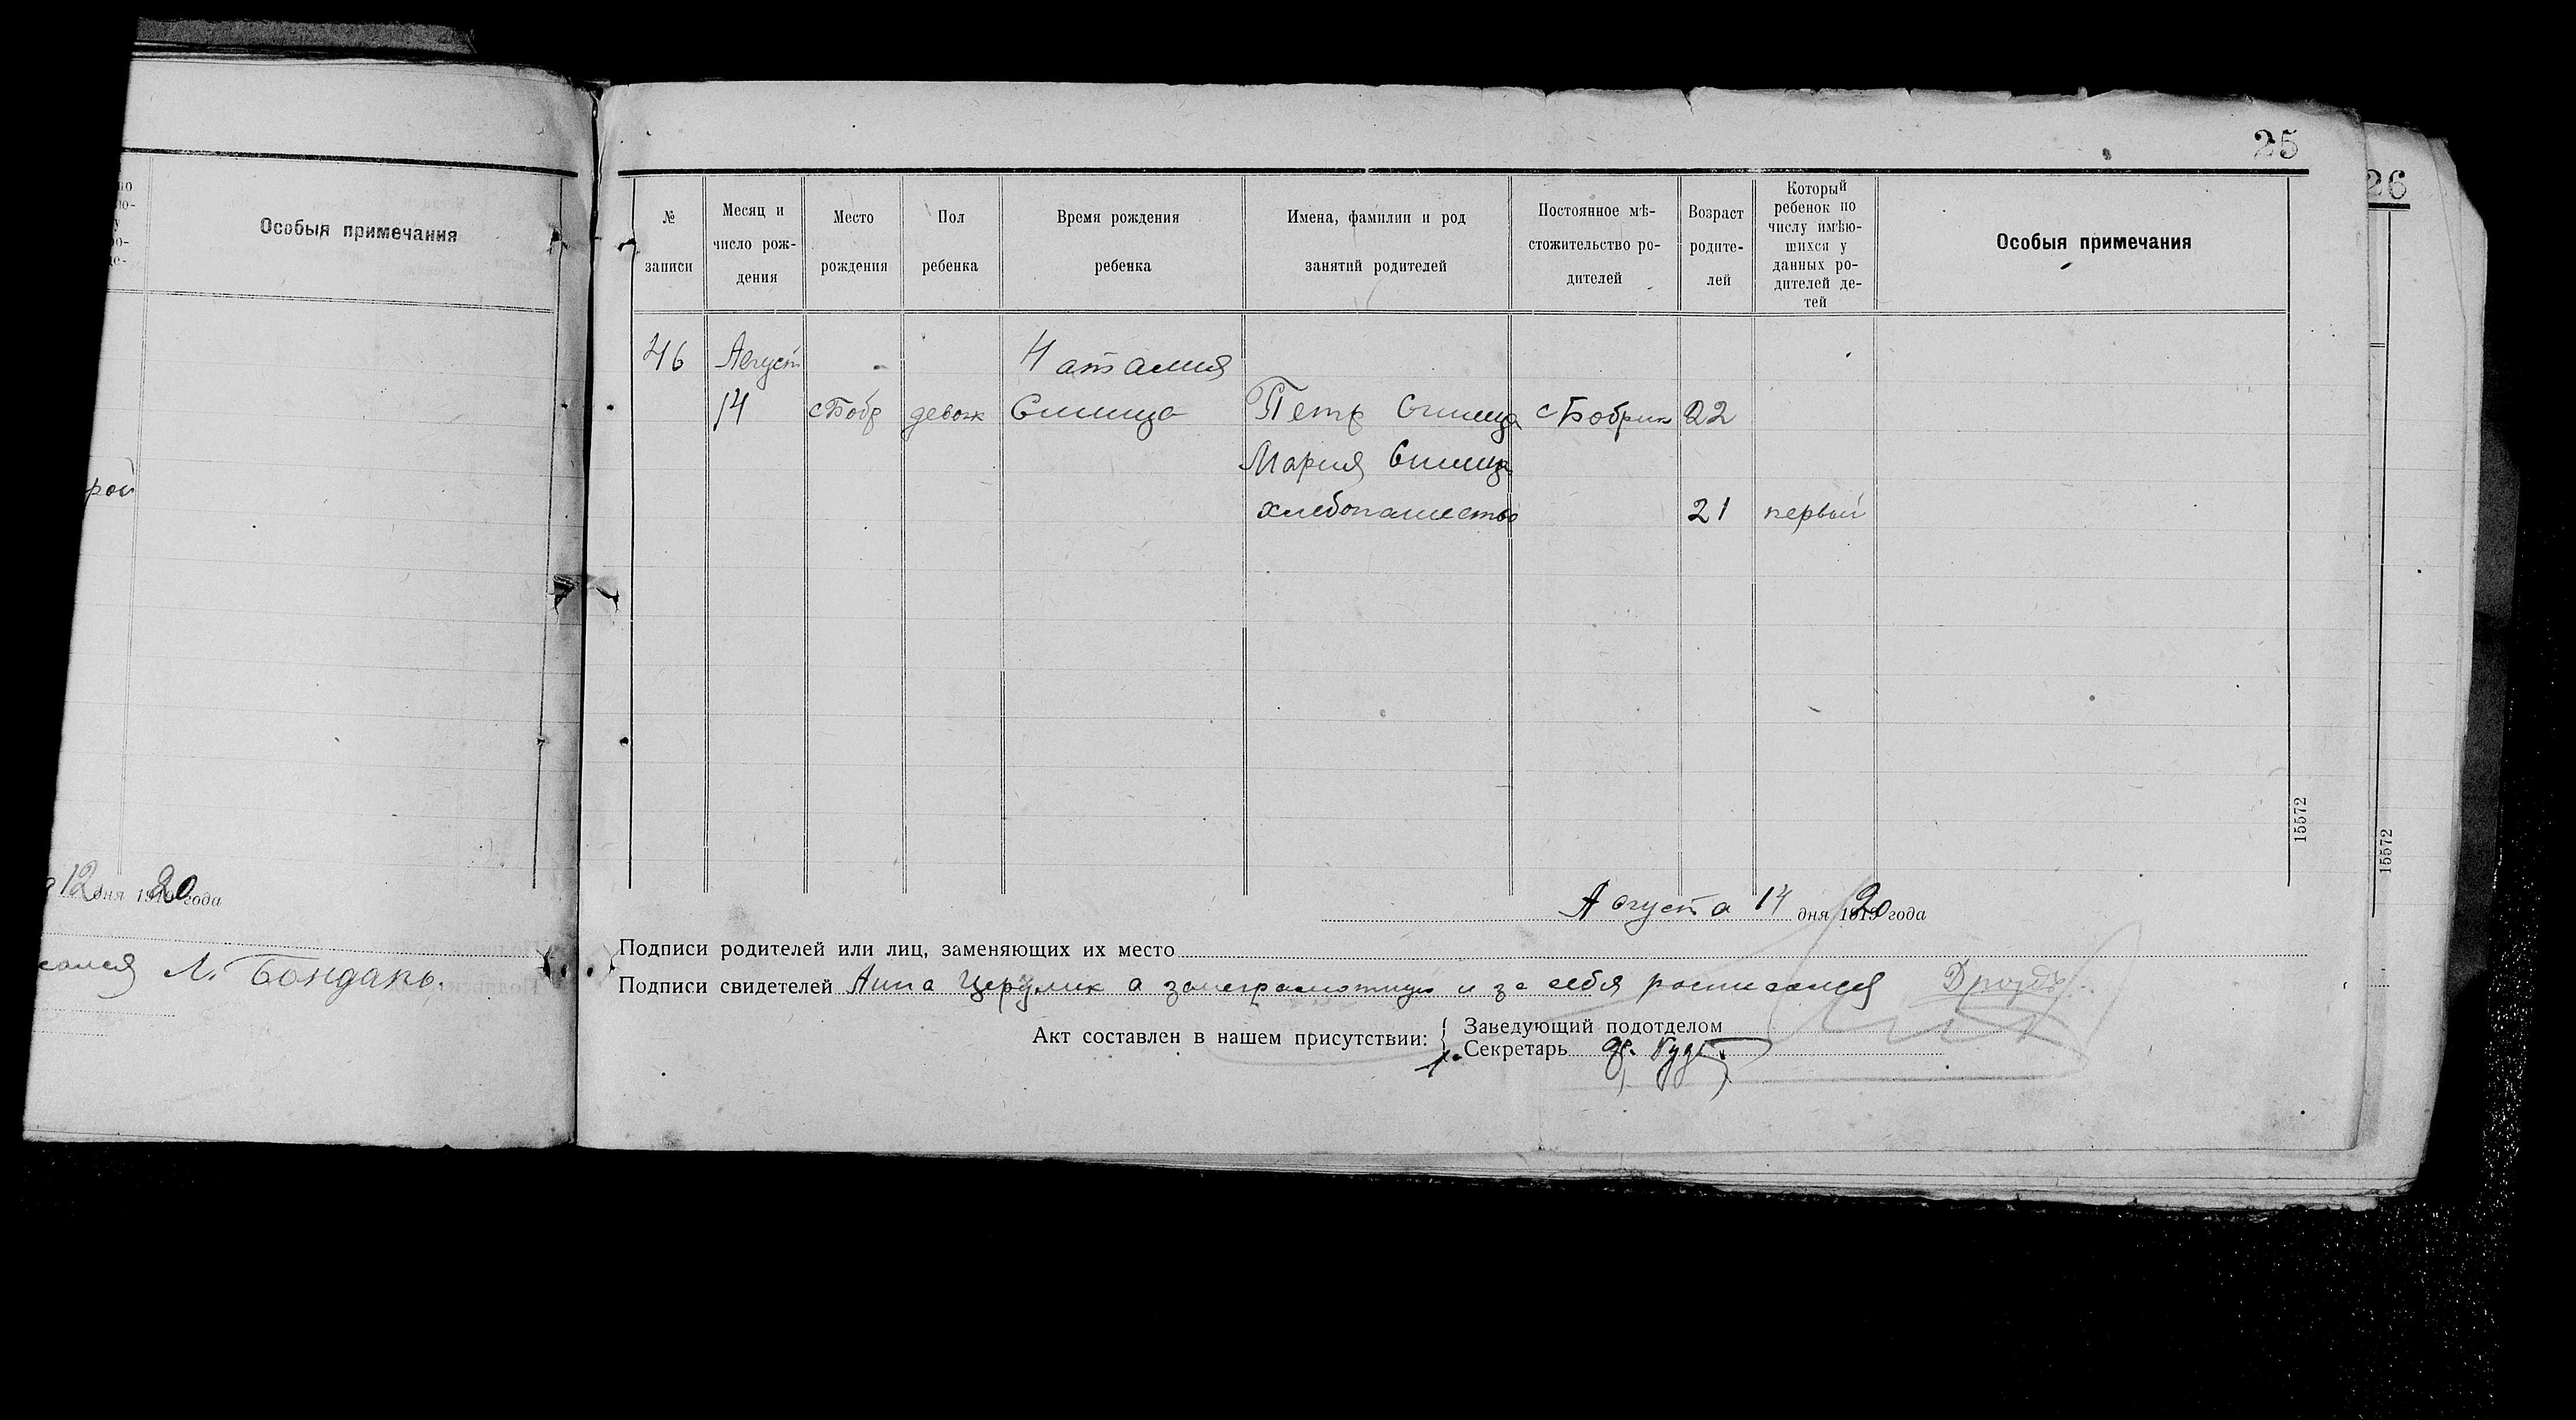 Особыя примечания
рой
12 дня 1920 года
Л. Бондарь.
25
26
№ записи
Месяц и число рождения
Место рождения
Пол ребенка
Время рождения ребенка
Имена, фамилии и род занятий родителей
Постоянное мѣстожительство родителей
Возраст родителей
Который ребенок по числу имѣющихся у данных родителей детей
Особыя примечания
46 Август Наталия
14 с Бобр девоч Синица Петр Синица с Бобрик 22
Мария Синица
хлебопашество 21 первый
15572
15572
Августа 14 дня 1920 года
Подписи родителей или лиц, заменяющих их место
Подписи свидетелей Анна а за неграмотную и за себя росписался Дроздъ
Акт составлен в нашем присутствии:
Заведующий подотделом
Секретарь